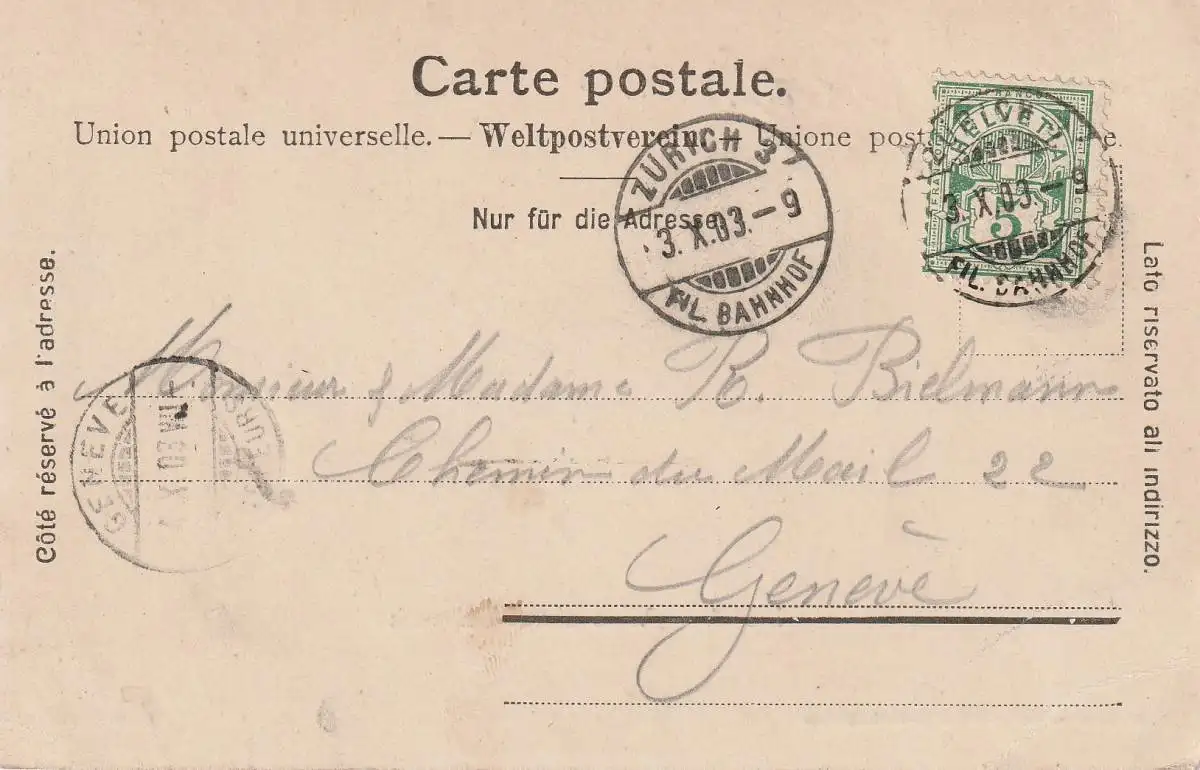 Carte postale.
Union postale universelle. — Weltpostverein. — Unione posta e.
Nur für die Adresse.
ZÜRICH 3
3. X. 03. – 9
FIL. BAHNHOF
HELVETIA
FRANCO
5
3. X. 03. – 9
FIL. BAHNHOF
Côté réservé à l'adresse.
Lato riservato all indirizzo.
GENÈVE
Monsieur & Madame R. Bielmann
Chemin du Mail 22
Genève